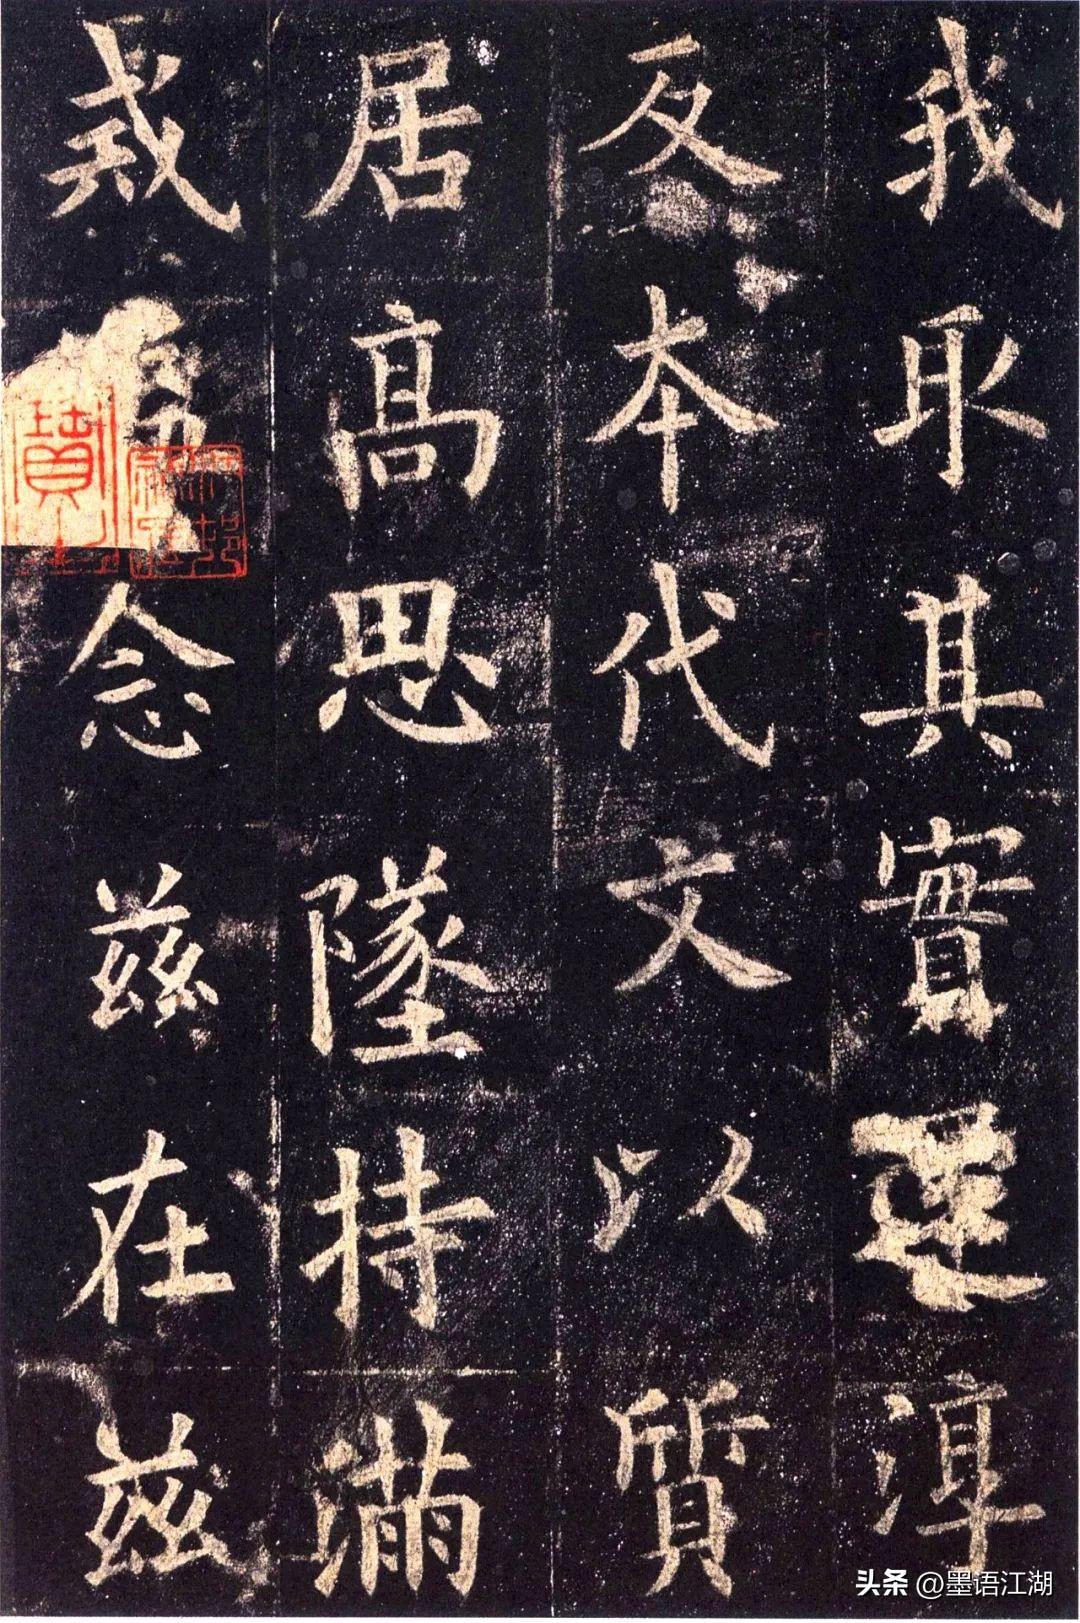 我取其實還淳
反本代文以質
居高思墜持滿
戒念兹在兹
头条 @墨语江湖